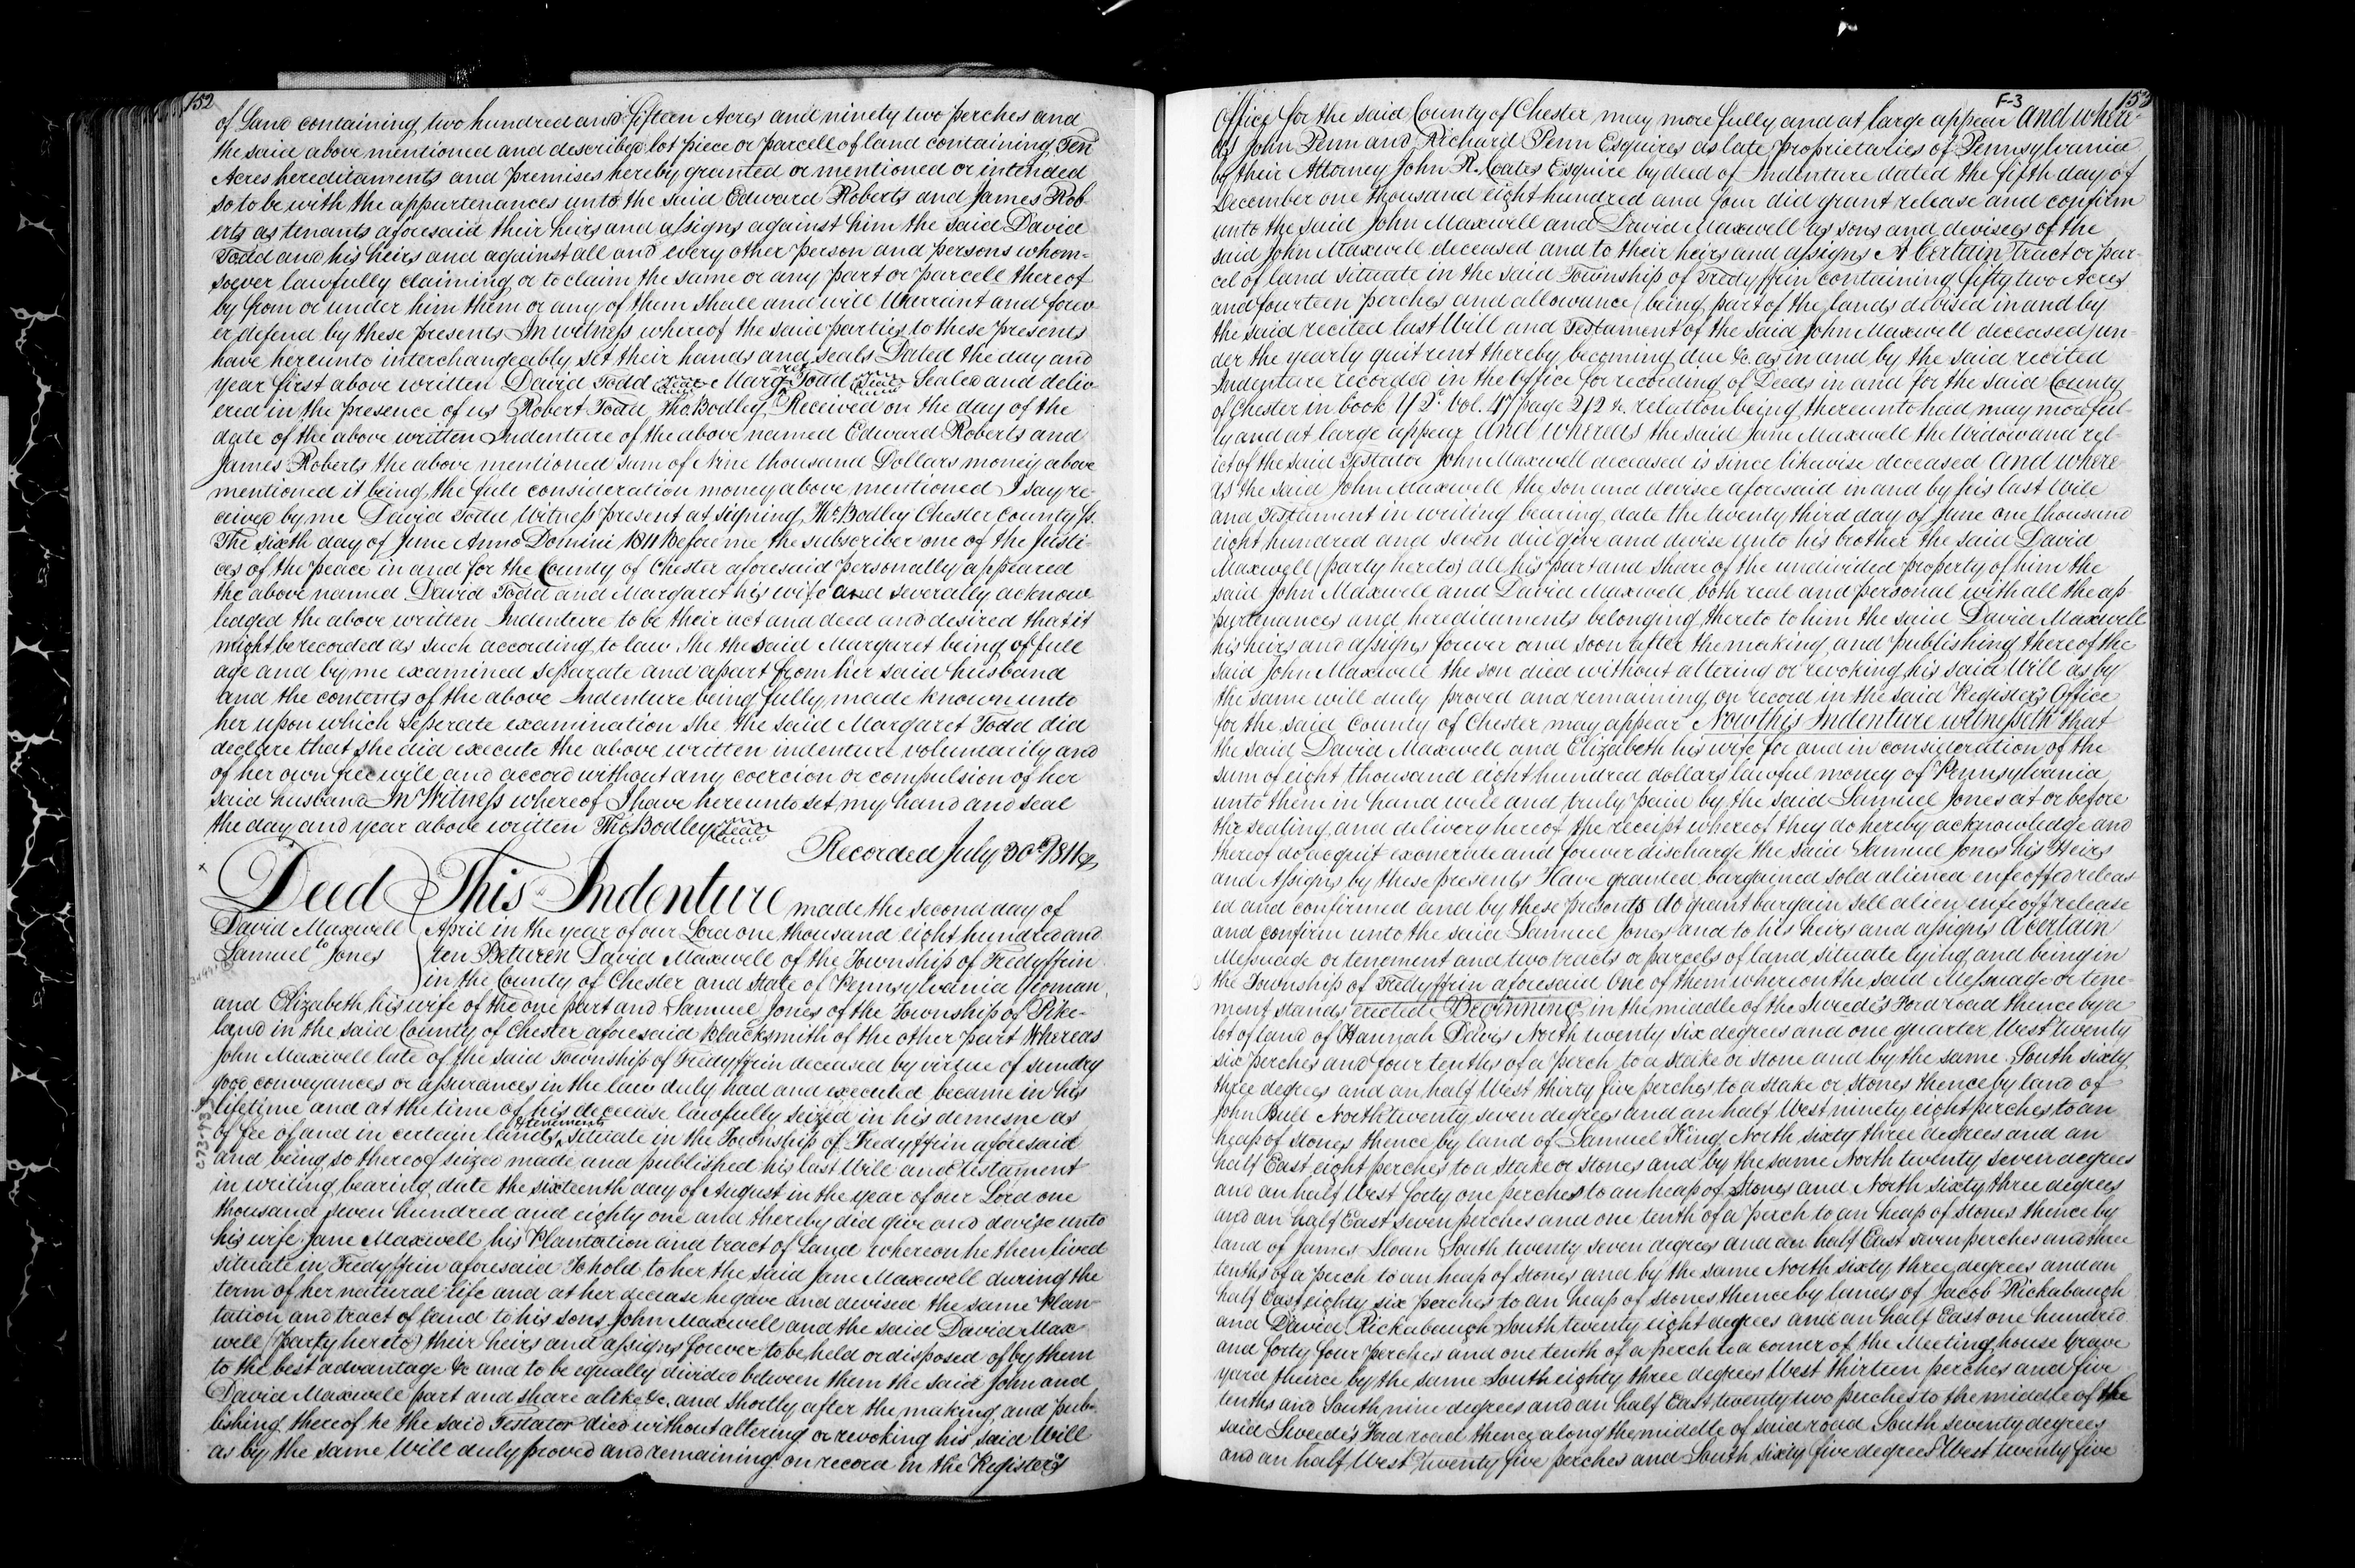 152
of Land containing two hundred and fifteen Acres and ninety two perches and
the said above mentioned and described lot piece or parcell of land containing Ten
Acres hereditaments and premises hereby granted or mentioned or intended
so to be with the appurtenances unto the said Edward Roberts and James Rob
erts as tenants aforesaid their heirs and assigns against him the said David
Todd and his heirs and against all and every other person and persons whom=
soever lawfully claiming or to claim the same or any part or parcell thereof
by from or under him them or any of them Shall and will Warrant and forev
er defend by these presents In witness whereof the said parties to these presents
have hereunto interchangeably set their hands and seals Dated the day and
year first above written David Todd Seal Margret Todd Seal Sealed and deliv
ered in the presence of us Robert Todd Tho. Bodley, Received on the day of the
date of the above written Indenture of the above named Edward Roberts and
James Roberts the above mentioned sum of Nine thousand Dollars money above
mentioned it being the full consideration money above mentioned I say re-
ceived by me David Todd Witness present at signing Tho. Bodley Chester County Ss.
The sixth day of June Anno Domini 1811 Before me the subscriber one of the Justi-
ces of the peace in and for the County of Chester aforesaid personally appeared
the above named David Todd and Margaret his wife and severally acknow
ledged the above written Indenture to be their act and deed and desired that it
might be recorded as such according to law She the said Margaret being of full
age and by me examined separate and apart from her said husband
and the contents of the above Indenture being fully made known unto
her upon which seperate examination she the said Margaret Todd did
declare that she did execute the above written indenture voluntarily and
of her own free will and accord without any coercion or compulsion of her
said husband In Witness whereof I have hereunto set my hand and seal
the day and year above written Tho. Bodley Seal
Recorded July 30th 1811
Deed This Indenture made the second day of
David Maxwell April in the year of our Lord one thousand eight hundred and
to
Samuel Jones ten Between David Maxwell of the Township of Tredyffrin
in the County of Chester and State of Pennsylvania Yeoman
and Elizabeth his wife of the one part and Samuel Jones of the Township of Pike-
land in the said County of Chester aforesaid blacksmith of the other part Whereas
John Maxwell late of the said Township of Tredyffrin deceased by virtue of sundry
good conveyances or assurances in the law duly had and executed became in his
lifetime and at the time of his decease lawfully seized in his demesne as
of fee of and in certain lands & tenements situate in the Township of Tredyffrin aforesaid
and being so thereof seized made and published his last Will and Testament
in writing bearing date the sixteenth day of August in the year of our Lord one
thousand seven hundred and eighty one and thereby did give and devise unto
his wife Jane Maxwell his Plantation and tract of Land whereon he then lived
situate in Tredyffrin aforesaid To hold to her the said Jane Maxwell during the
term of her natural life and at her decease he gave and devised the same Plan
tation and tract of land to his sons John Maxwell and the said David Max
well (party hereto) their heirs and assigns forever to be held or disposed of by them
to the best advantage &c and to be equally divided between them the said John and
David Maxwell part and share alike &c. and shortly after the making and pub-
lishing thereof he the said Testator died without altering or revoking his said Will
as by the same Will duly proved and remaining on record in the Register's
F-3 153
Office for the said County of Chester may more fully and at large appear And where-
as John Penn and Richard Penn Esquires as late proprietaries of Pennsylvania
by their Attorney John R. Coates Esquire by deed of Indenture dated the fifth day of
December one thousand eight hundred and four did grant release and confirm
unto the said John Maxwell and David Maxwell as sons and devisees of the
said John Maxwell deceased and to their heirs and assigns A Certain Tract or par-
cel of land situate in the said Township of Tredyffrin containing fifty two Acres
and fourteen perches and allowance (being part of the lands devised in and by
the said recited last Will and Testament of the said John Maxwell deceased) un-
der the yearly quitrent thereby becoming due &c as in and by the said recited
Indenture recorded in the Office for recording of Deeds in and for the said County
of Chester in book Y 2d. Vol. 47 page 212 &c. relation being thereunto had may more ful-
ly and at large appear And whereas the said Jane Maxwell the Widow and rel-
ict of the said Testator John Maxwell deceased is since likewise deceased And where
as the said John Maxwell the son and devisee aforesaid in and by his last Will
and Testament in writing bearing date the twenty third day of June one thousand
eight hundred and seven did give and devise unto his brother the said David
Maxwell (party hereto) all his part and share of the undivided property of him the
said John Maxwell and David Maxwell both real and personal with all the ap-
purtenances and hereditaments belonging thereto to him the said David Maxwell
his heirs and assigns forever and soon after the making and publishing thereof the
said John Maxwell the son died without altering or revoking his said Will as by
the same will duly proved and remaining on record in the said Register's Office
for the said County of Chester may appear Now this Indenture witnesseth that
the said David Maxwell and Elizabeth his wife for and in consideration of the
sum of eight thousand eight hundred dollars lawful money of Pennsylvania
unto them in hand well and truly paid by the said Samuel Jones at or before
the sealing and delivery hereof the receipt whereof they do hereby acknowledge and
thereof do acquit exonerate and forever discharge the said Samuel Jones his Heirs
and Assigns by these presents Have granted bargained sold aliened enfeoffed releas
ed and confirmed and by these presents do grant bargain sell alien enfeoff release
and confirm unto the said Samuel Jones and to his heirs and assigns A certain
Messuage or tenement and two tracts or parcels of land situate lying and being in
the Township of Tredyffrin aforesaid One of them whereon the said Messuage or tene-
ment stands erected Beginning in the middle of the Swede's Ford road thence by a
lot of land of Hannah Davis North twenty six degrees and one quarter West twenty
six perches and four tenths of a perch to a stake or stone and by the same South sixty
three degrees and an half West thirty five perches to a stake or stones thence by land of
John Bull North twenty seven degrees and an half West ninety eight perches to an
heap of stones thence by land of Samuel King North sixty three degrees and an
half East eight perches to a stake or stones and by the same North twenty seven degrees
and an half West forty one perches to an heap of stones and North sixty three degrees
and an half East seven perches and one tenth of a perch to an heap of stones thence by
land of James Sloan South twenty seven degrees and an half East seven perches and three
tenths of a perch to an heap of stones and by the same North sixty three degrees and an
half East eighty six perches to an heap of stones thence by lands of Jacob Rickabaugh
and David Rickabaugh South twenty eight degrees and an half East one hundred
and forty four perches and one tenth of a perch to a corner of the Meeting house Grave
yard thence by the same South eighty three degrees West thirteen perches and five
tenths and South nine degrees and an half East twenty two perches to the middle of the
said Swede's Ford road thence along the middle of said road South seventy degrees
and an half West twenty five perches and South sixty five degrees West twenty five